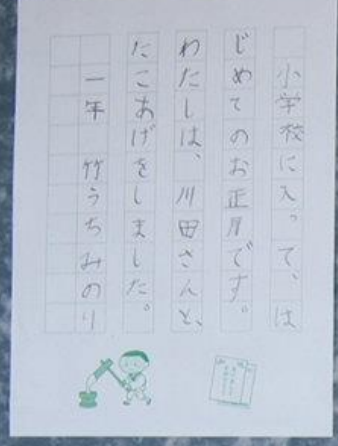 小学校に入って、は
じめてのお正月です。
わたしは、川田さんと、
たこあげをしました。
一年 竹うちみのり